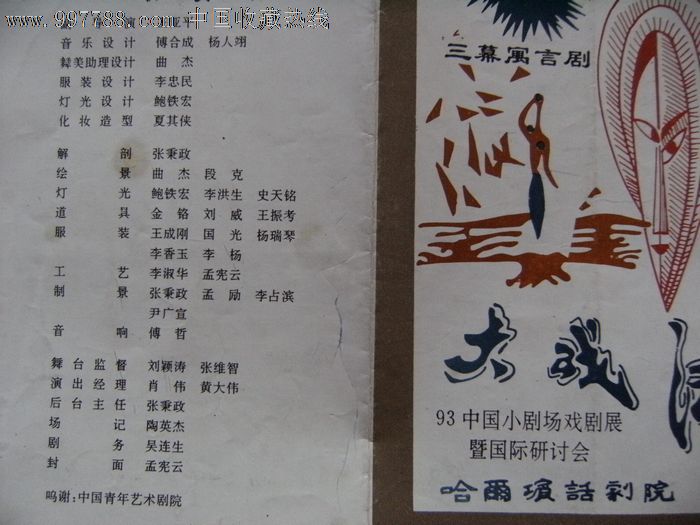 www.997788.com 中国收藏热线
音乐设计 傅合成 杨人翊
舞美助理设计 曲杰
服装设计 李忠民
灯光设计 鲍铁宏
化妆造型 夏其侠
解剖 张秉政
绘景 曲杰 段克
灯光 鲍铁宏 李洪生 史天铭
道具 金铬 刘威 王振考
服装 王成刚 国光 杨瑞琴
李香玉 李杨
工艺 李淑华 孟宪云
制景 张秉政 孟励 李占滨
尹广宣
音响 傅哲
舞台监督 刘颖涛 张维智
演出经理 肖伟 黄大伟
后台主任 张秉政
场记 陶英杰
剧务 吴连生
封面 孟宪云
鸣谢:中国青年艺术剧院
三幕寓言剧
大戏
93 中国小剧场戏剧展
暨国际研讨会
哈爾濱話剧院